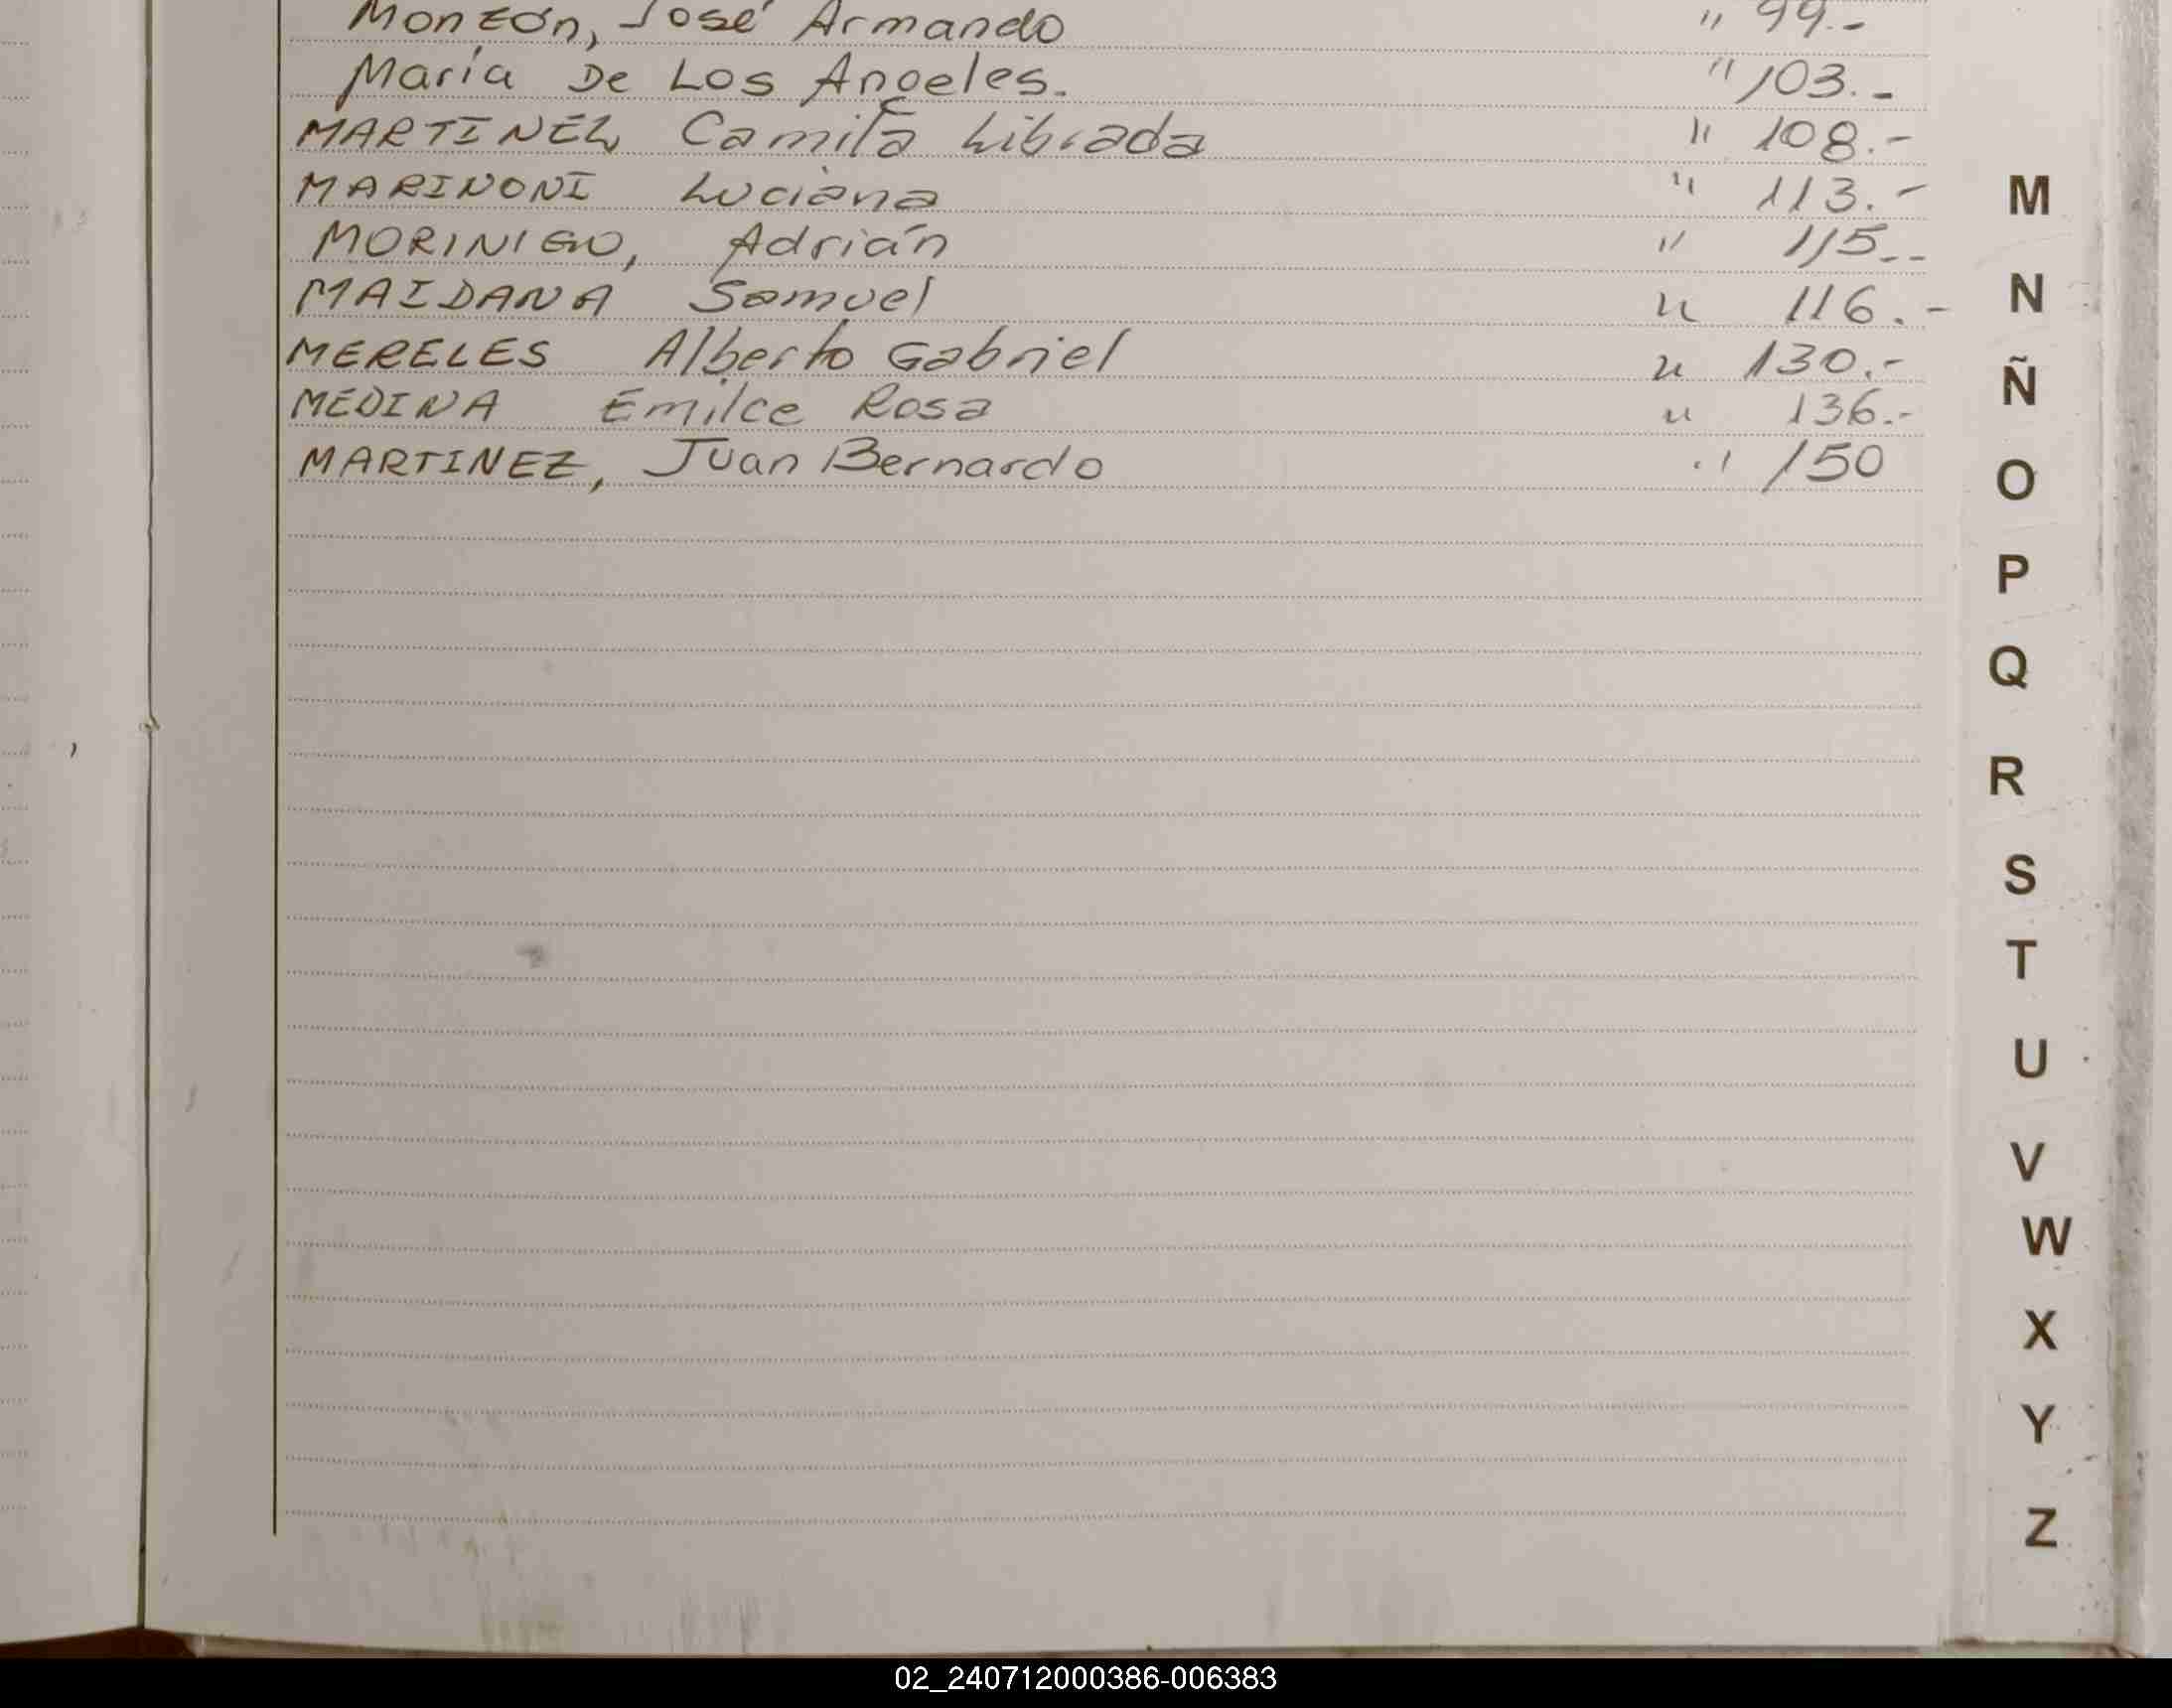 Monzón, José Armando " 99.-
María De Los Angeles. " 103.-
MARTINEZ Camila Librada " 108.-
MARINONI Luciana " 113.-
MORINIGO, Adrián " 115.-
MAIDANA Samuel " 116.-
MERELES Alberto Gabriel " 130.-
MEDINA Emilce Rosa " 136.-
MARTINEZ, Juan Bernardo " 150
M
N
Ñ
O
P
Q
R
S
T
U
V
W
X
Y
Z
02_240712000386-006383